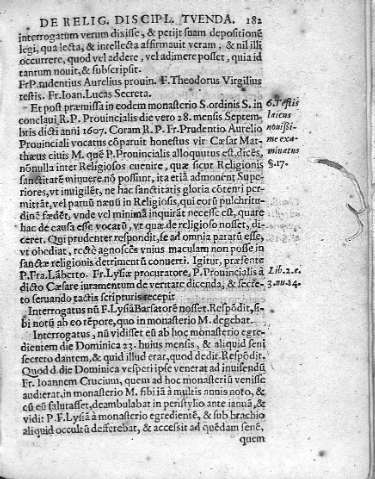 DE RELIG. DISCIPL. TVENDA. 182
interrogatum verum dixisse, & petijt suam depositionē
legi, qua lecta, & intellecta affirmauit veram, & nil illi
occurrere, quod vel addere, vel adjmere posset, quia id
tantum nouit, & subscripsit.
Fr. P. rudentius Aurelius prouin. F. Theodorus Virgilius
testis. Fr. Ioan. Lucas Secreta.
Et post præmissa in eodem monasterio S. ordinis S. in
conclaui R. P. Prouincialis die vero 28. mensis Septem
bris dicti anni 1607. Coram R. P. Fr. Prudentio Aurelio
Prouinciali vocatus cōparuit honestus vir Cæsar Mat-
thæus ciuis M. quē P. Prouincialis alloquutus est, dicēs,
nōnulla inter Religiosos euenire, quæ sicut Religionis
sanctitatē minuere nō possunt, ita etiā admonent Supe-
riores, vt inuigilēt, ne hac sanctitatis gloria cōteri per-
mittāt, vel paruū næuū in Religiosis, qui eorū pulchritu-
dinē fœdēt, vnde vel minima inquirāt necesse est, quare
hac de causa esse vocatū, vt quæ de religioso nosset, di-
ceret. Qui prudenter respondit, se ad omnia paratū esse,
vt obediat, rectè agnoscēs vnius maculam non posse in
sanctæ religionis detrimentū conuerti. Igitur, præsente
P. Fra. Lāberto. Fr. Lysiæ procuratore, P. Prouincialis à
dicto Cæsare iuramentum de veritate dicenda, & secre-
to seruando tactis scripturis recepit
Interrogatus nū F. Lysiā Barsatorē nosset. Respōdit, si-
bi notū ab eo tēpore, quo in monasterio M. degebat.
Interrogatus, nū vidisset eū ab hoc monasterio egre-
dientem die Dominica 23. huius mensis, & aliquid seni
secreto dantem, & quid illud erat, quod dedit. Respōdit.
Quod die Dominica vesperi ipse venerat ad inuisendū
Fr. Ioannem Crucium, quem ad hoc monasteriū venisse
audierat, in monasterio M. sibi iā à multis annis noto, &
cū eū salutasset, deambulabat in peristylio ante ianuā, &
vidit P. F. Lysiā à monasterio egredientē, & sub brachio
aliquid occultū defferebat, & accessit ad quēdam senē,
quem
6. Testis
laicus
nouissi-
me exa-
minatus
§. 17.
Lib. 2. c.
3. nu. 24.